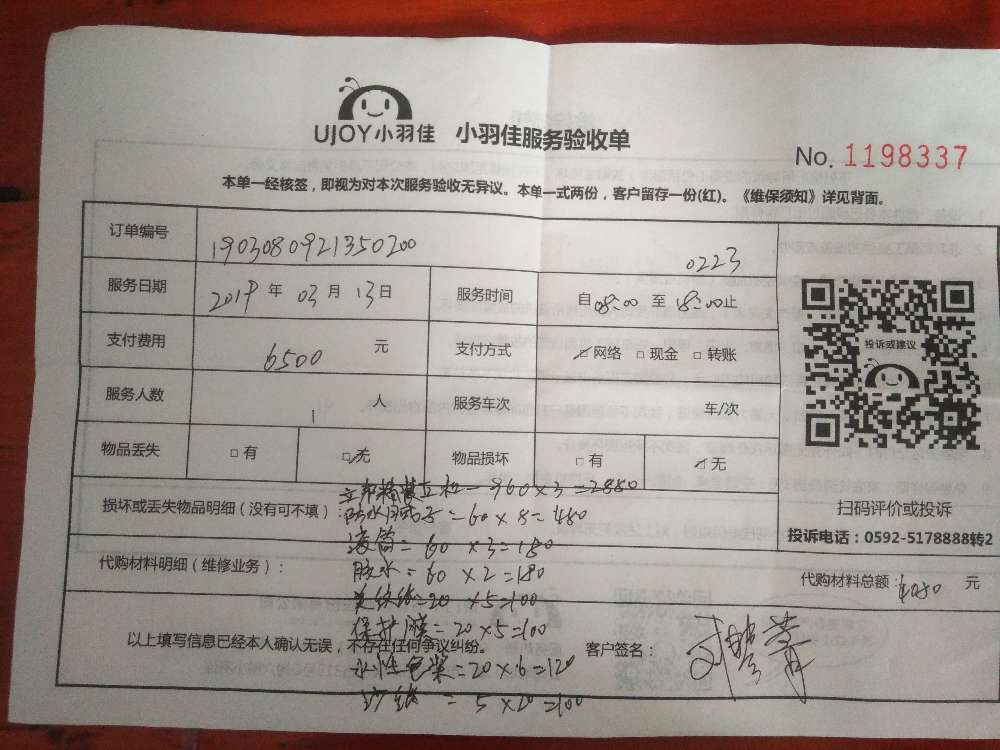 UJOY小羽佳 小羽佳服务验收单
No. 1198337
本单一经核签，即视为对本次服务验收无异议。本单一式两份，客户留存一份(红)。《维保须知》详见背面。
订单编号 1903080921350200 0223
服务日期 2019 年 03 月 13 日 服务时间 自 08:00 至 18:00 止
支付费用 6500 元 支付方式 ☑网络 □现金 □转账
服务人数 1 人 服务车次 车/次
物品丢失 □有 ☑无 物品损坏 □有 ☑无
投诉或建议
扫码评价或投诉
投诉电话：0592-5178888转2
960×3=2880
损坏或丢失物品明细（没有可不填）：
=60×8=480
滚筒=60×3=180
代购材料明细（维修业务）：
胶水=60×2=180
代购材料总额：4080 元
美纹纸=20×5=100
保护膜=20×5=100
以上填写信息已经本人确认无误，不存在任何争议纠纷。
客户签名：
水性色浆=20×6=120
砂纸=5×20=100